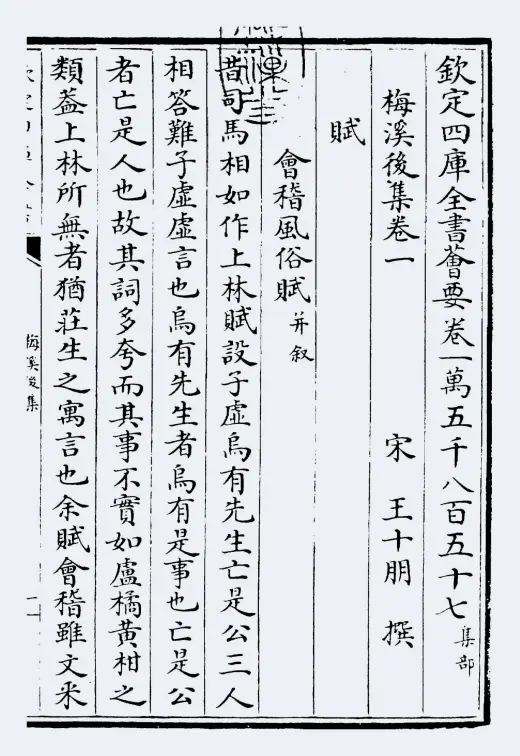 欽定四庫全書薈要卷一萬五千八百五十七 集部
梅溪後集卷一 宋 王十朋 撰
賦
會稽風俗賦 并叙
昔司馬相如作上林賦設子虛烏有先生亡是公三人
相答難子虛虛言也烏有先生者烏有是事也亡是公
者亡是人也故其詞多夸而其事不實如盧橘黃柑之
類葢上林所無者猶莊生之寓言也余賦會稽雖文采
梅溪後集